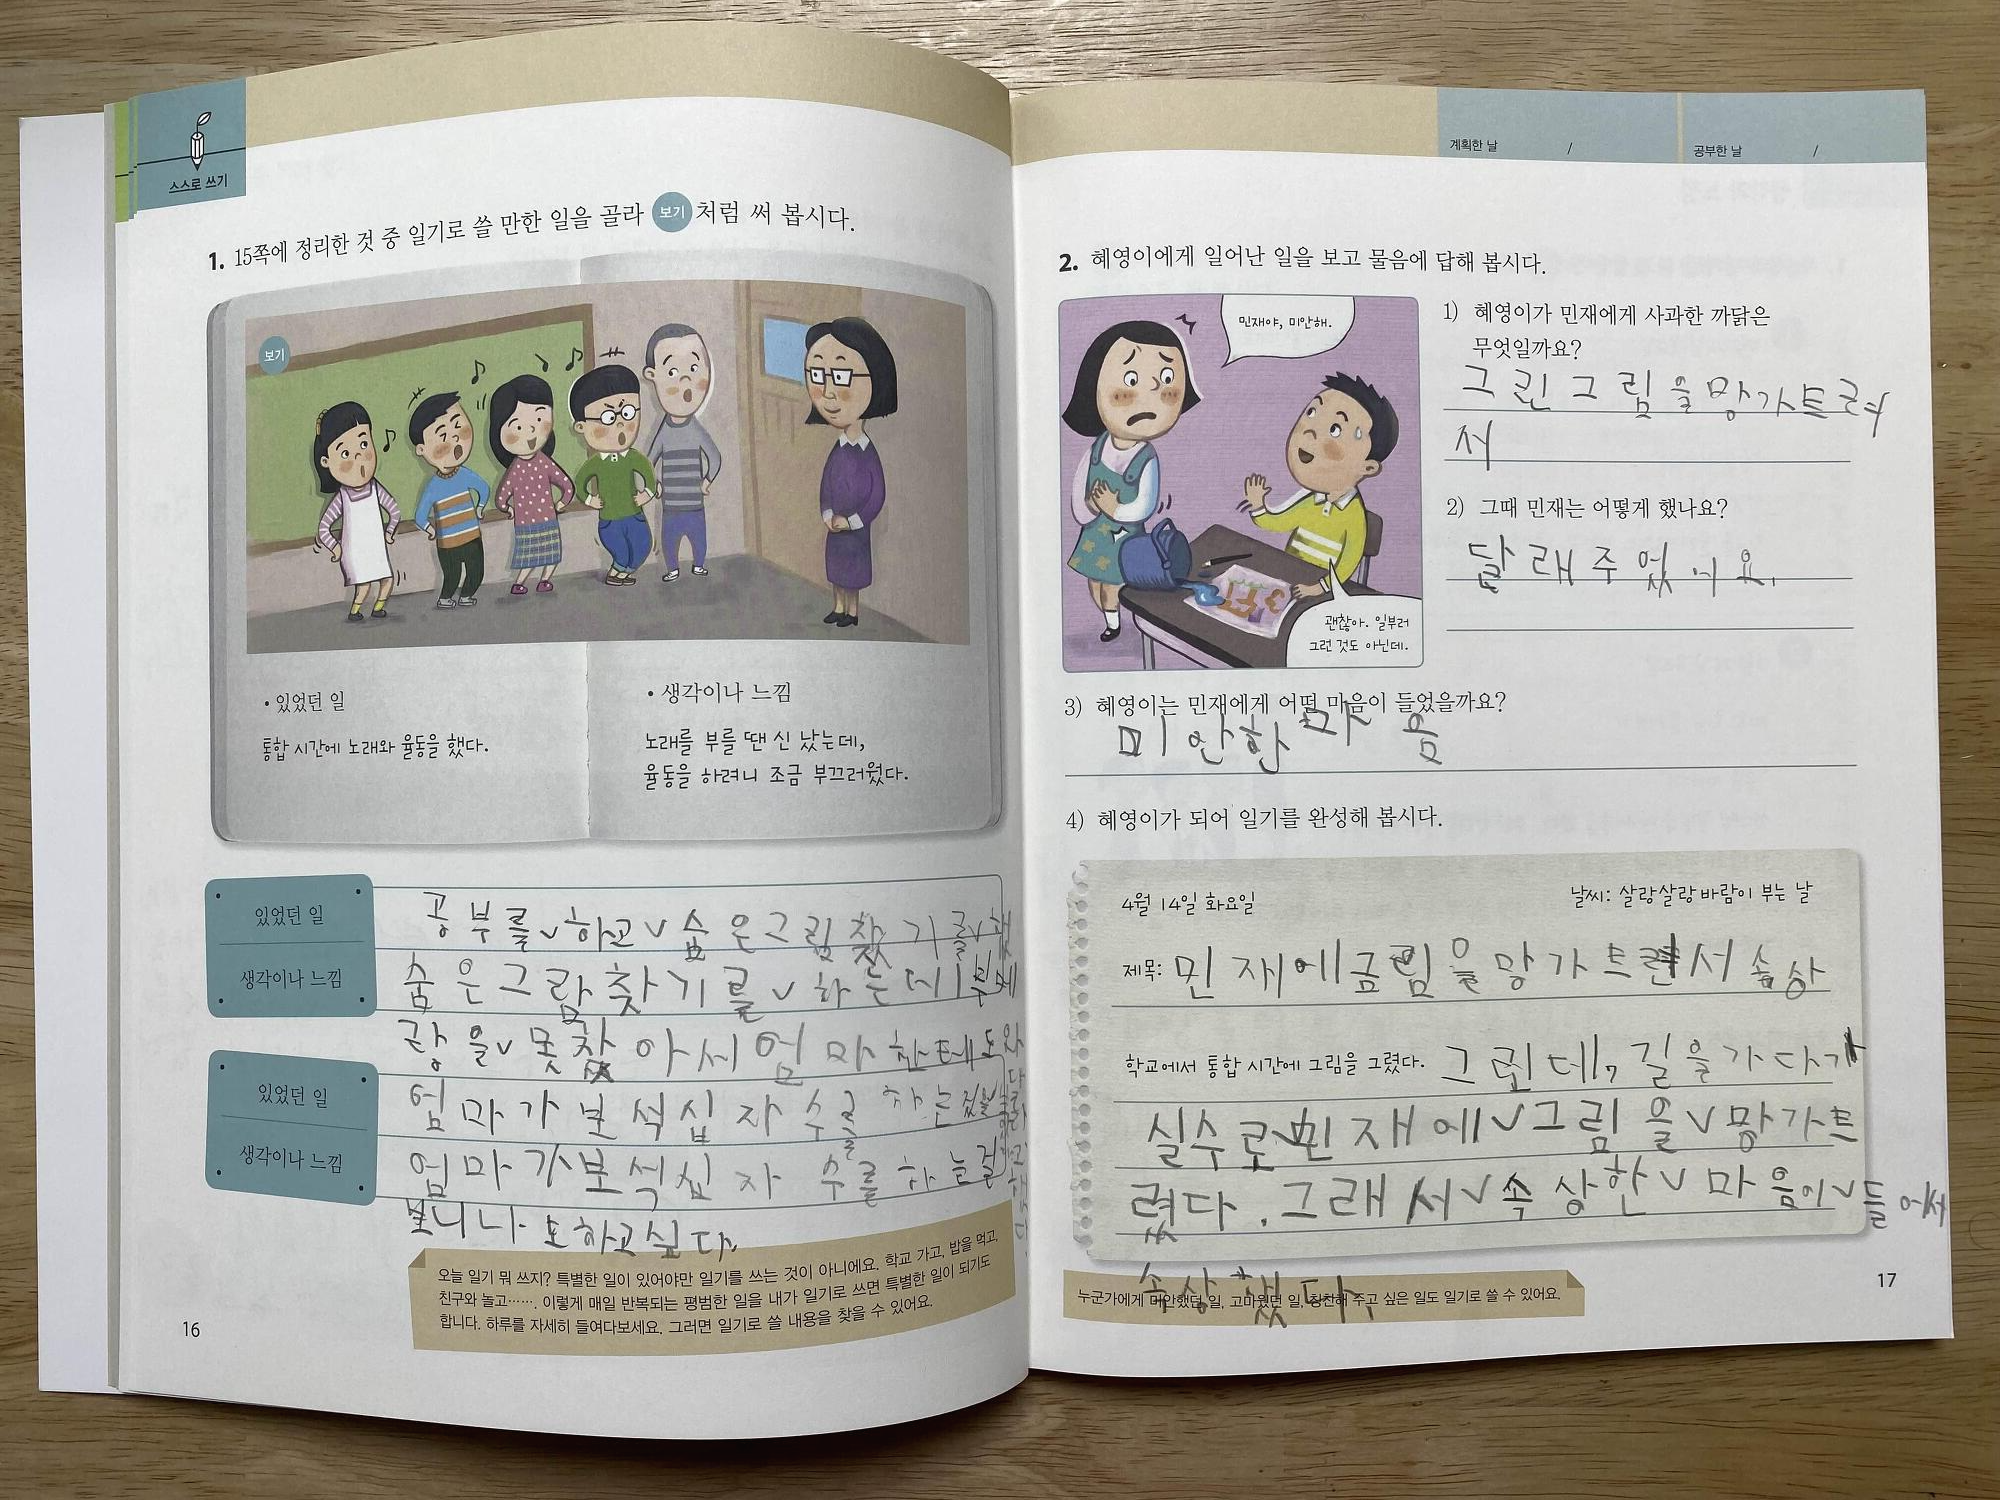 스스로 쓰기
1. 15쪽에 정리한 것 중 일기로 쓸 만한 일을 골라 보기 처럼 써 봅시다.
보기
• 있었던 일
통합 시간에 노래와 율동을 했다.
• 생각이나 느낌
노래를 부를 땐 신 났는데,
율동을 하려니 조금 부끄러웠다.
있었던 일
생각이나 느낌
공부를∨하고∨숨은그림찾기를∨했
숨은그림찾기를∨하는데
을∨못찾아서엄마한테도와
있었던 일
생각이나 느낌
엄마가보석십자수를 하는
엄마가보석십자수를하는걸
보니나도하고싶다.
오늘 일기 뭐 쓰지? 특별한 일이 있어야만 일기를 쓰는 것이 아니에요. 학교 가고, 밥을 먹고,
친구와 놀고……. 이렇게 매일 반복되는 평범한 일을 내가 일기로 쓰면 특별한 일이 되기도
합니다. 하루를 자세히 들여다보세요. 그러면 일기로 쓸 내용을 찾을 수 있어요.
16
계획한 날 /
공부한 날 /
2. 혜영이에게 일어난 일을 보고 물음에 답해 봅시다.
민재야, 미안해.
괜찮아. 일부러
그런 것도 아닌데.
1) 혜영이가 민재에게 사과한 까닭은
무엇일까요?
그린그림을망가트려
서
2) 그때 민재는 어떻게 했나요?
달래주었어요.
3) 혜영이는 민재에게 어떤 마음이 들었을까요?
미안한마음
4) 혜영이가 되어 일기를 완성해 봅시다.
4월 14일 화요일
날씨: 살랑살랑 바람이 부는 날
제목: 민재에그림을망가트려서속상
학교에서 통합 시간에 그림을 그렸다. 그런데, 길을가다가
실수로∨민재에∨그림을∨망가트
렸다. 그래서∨속상한∨마음이∨들어서
속상했다.
누군가에게 미안했던 일, 고마웠던 일, 칭찬해 주고 싶은 일도 일기로 쓸 수 있어요.
17